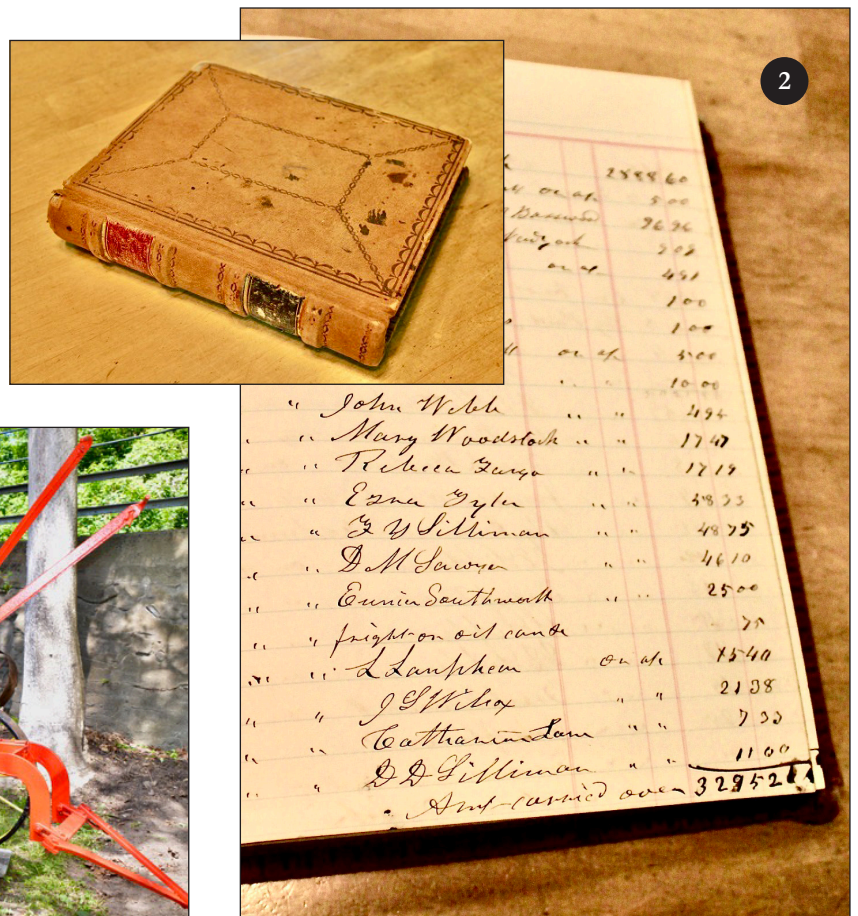 2
2888 60
on ap 5 00
96 96
9 09
on ap 4 91
1 00
1 00
on ap 5 00
" " 10 00
" John Webb " " 4 94
" " Mary Woodstock " " 17 47
" " Rebecca Fargo " " 17 19
" " Ezra Tyler " "
" " F Y Silliman " " 48 75
" " D M Sawyer " " 46 10
" " Eunice Southworth " " 25 00
" " freight on oil 75
" " L Lanphear on ap 15 40
" " J S Wilcox " " 21 38
" " Catharine " " 7 33
" " D D Silliman " " 11 00
Amt carried over 3295 2